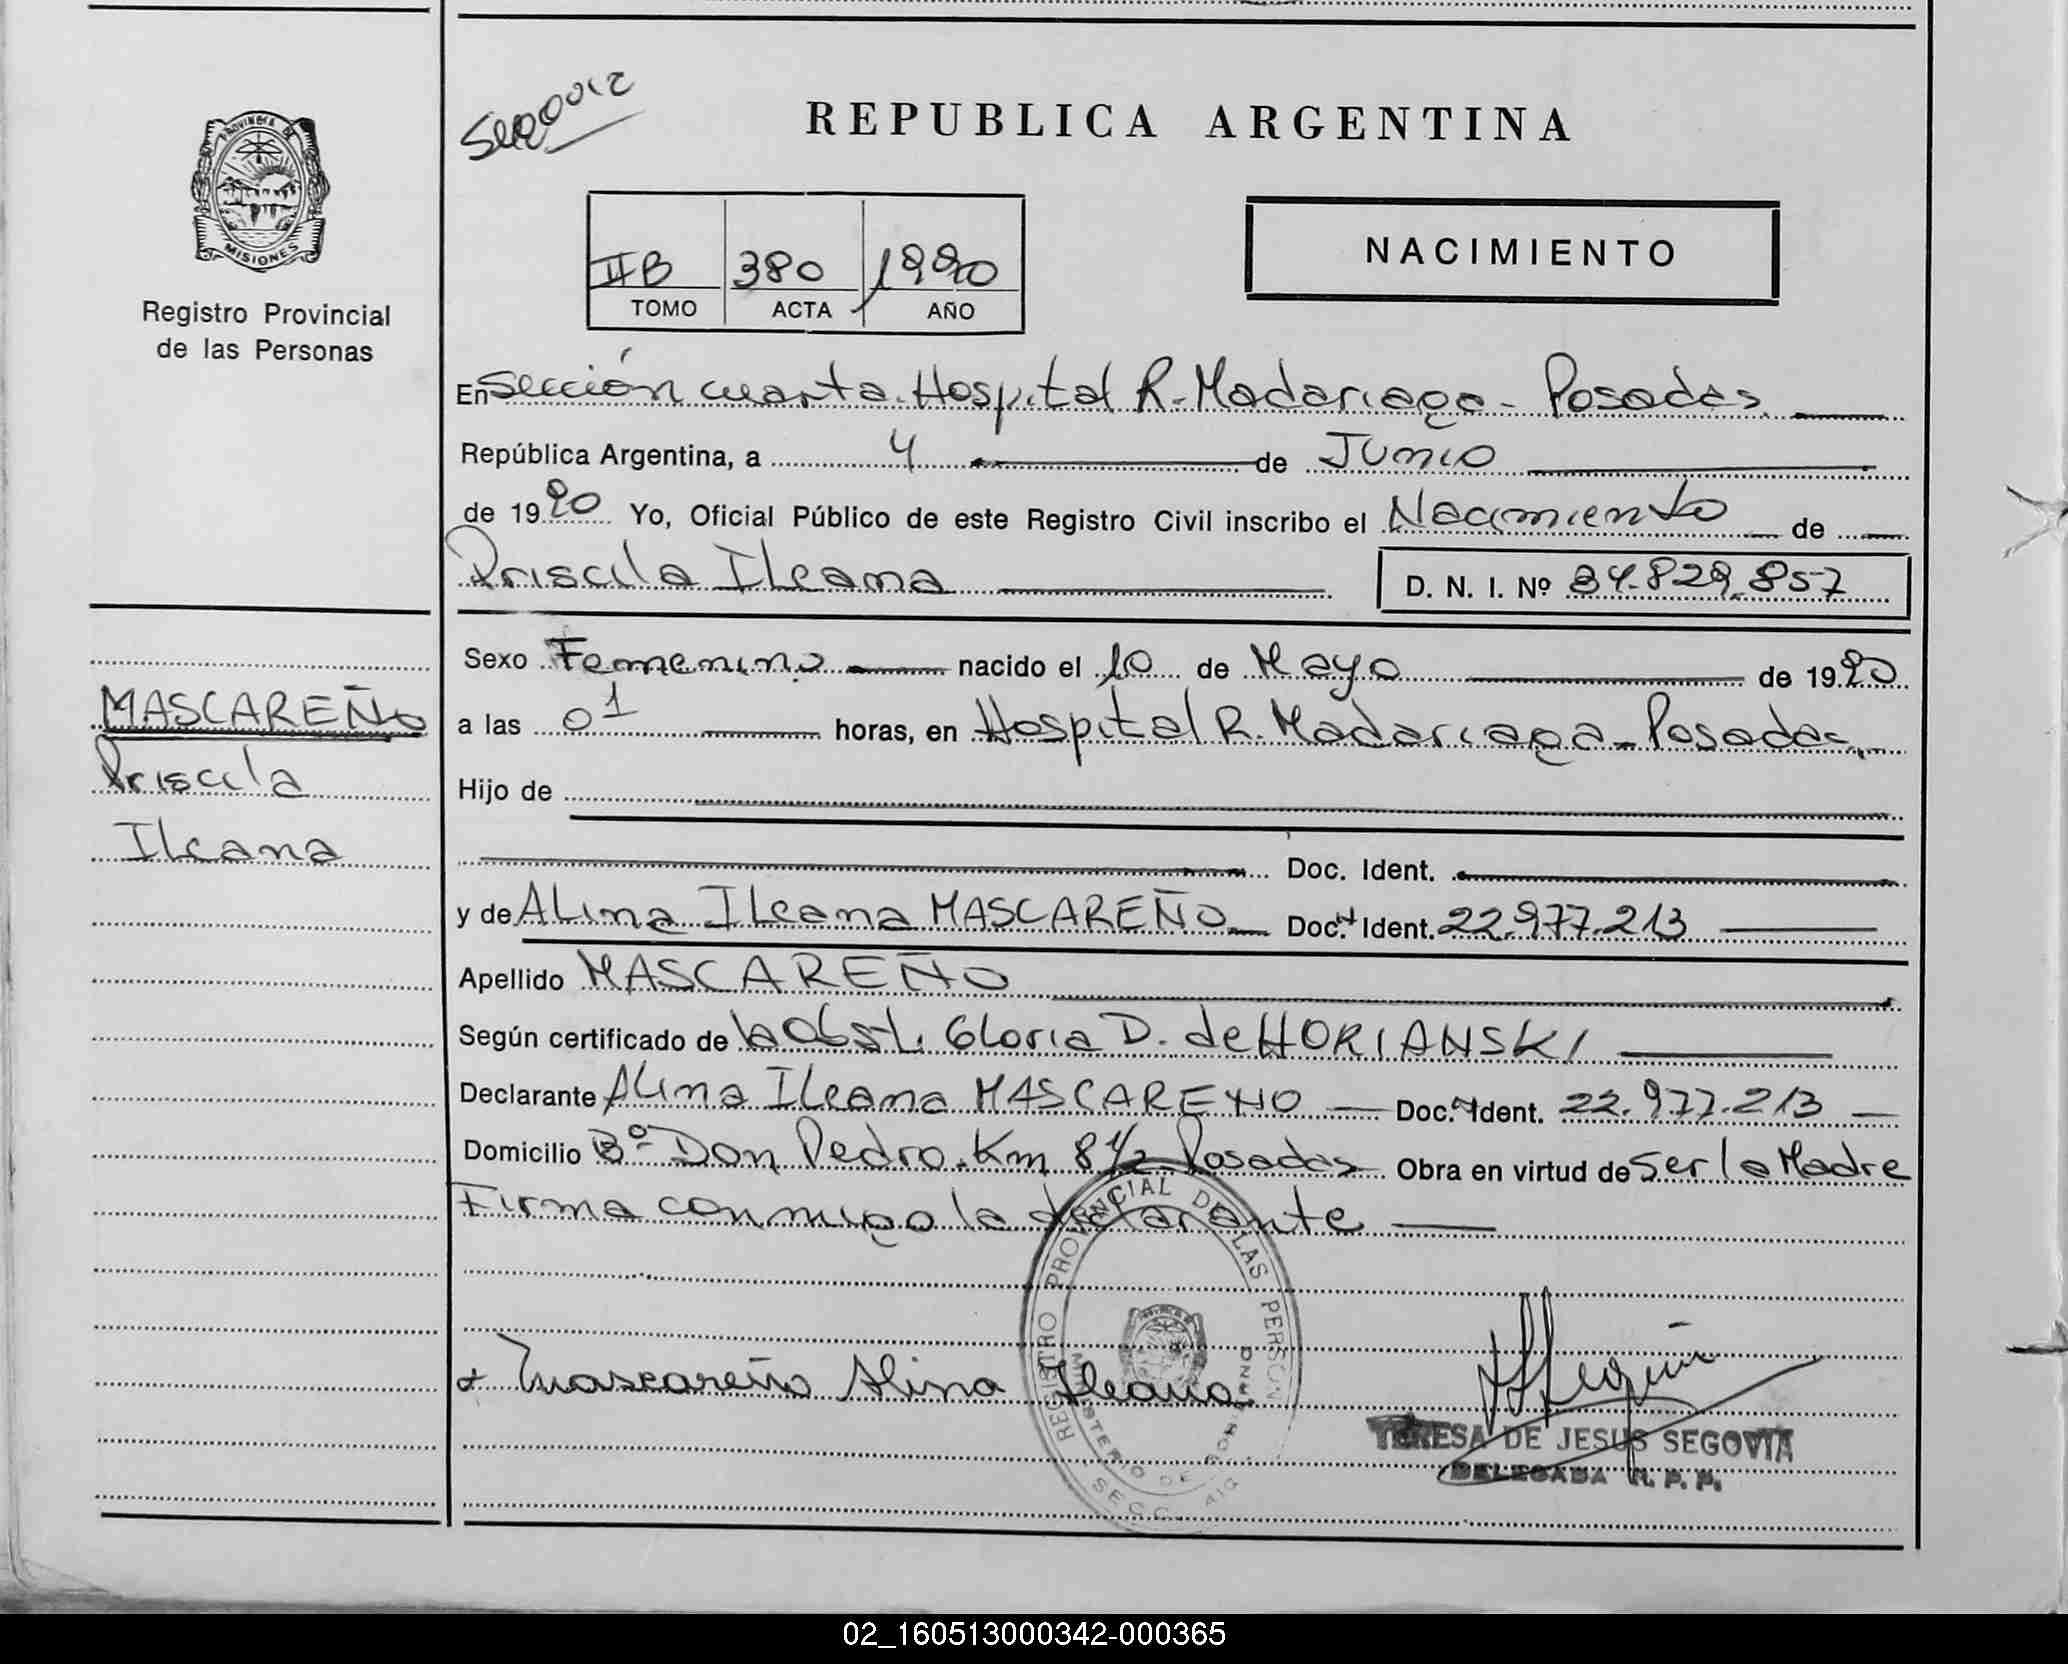 REPUBLICA ARGENTINA
PROVINCIA DE
MISIONES
Registro Provincial
de las Personas
IIB 380 1990
TOMO ACTA AÑO
NACIMIENTO
En Sección cuarta. Hospital R. Madariaga - Posadas
República Argentina, a 4 de Junio
de 1990 Yo, Oficial Público de este Registro Civil inscribo el Nacimiento de
Priscila Ileana D. N. I. Nº 34.829.857
Sexo Femenino nacido el 10 de Mayo de 1990
a las 01 horas, en Hospital R. Madariaga - Posadas
Hijo de
Doc. Ident.
y de Alina Ileana MASCAREÑO Doc. Ident. 22.977.213
Apellido MASCAREÑO
Según certificado de la Obst. Gloria D. de HORIANSKI
Declarante Alina Ileana MASCAREÑO Doc. Ident. 22.977.213
Domicilio Bº Don Pedro. Km 8 1/2 Posadas Obra en virtud de ser la Madre
Firma conmigo la declarante
MASCAREÑO
Priscila
Ileana
REGISTRO PROVINCIAL DE LAS PERSONAS
MINISTERIO DE GOBIERNO
SECC. 4
Mascareño Alina Ileana
TERESA DE JESUS SEGOVIA
DELEGADA R. P. P.
02_160513000342-000365